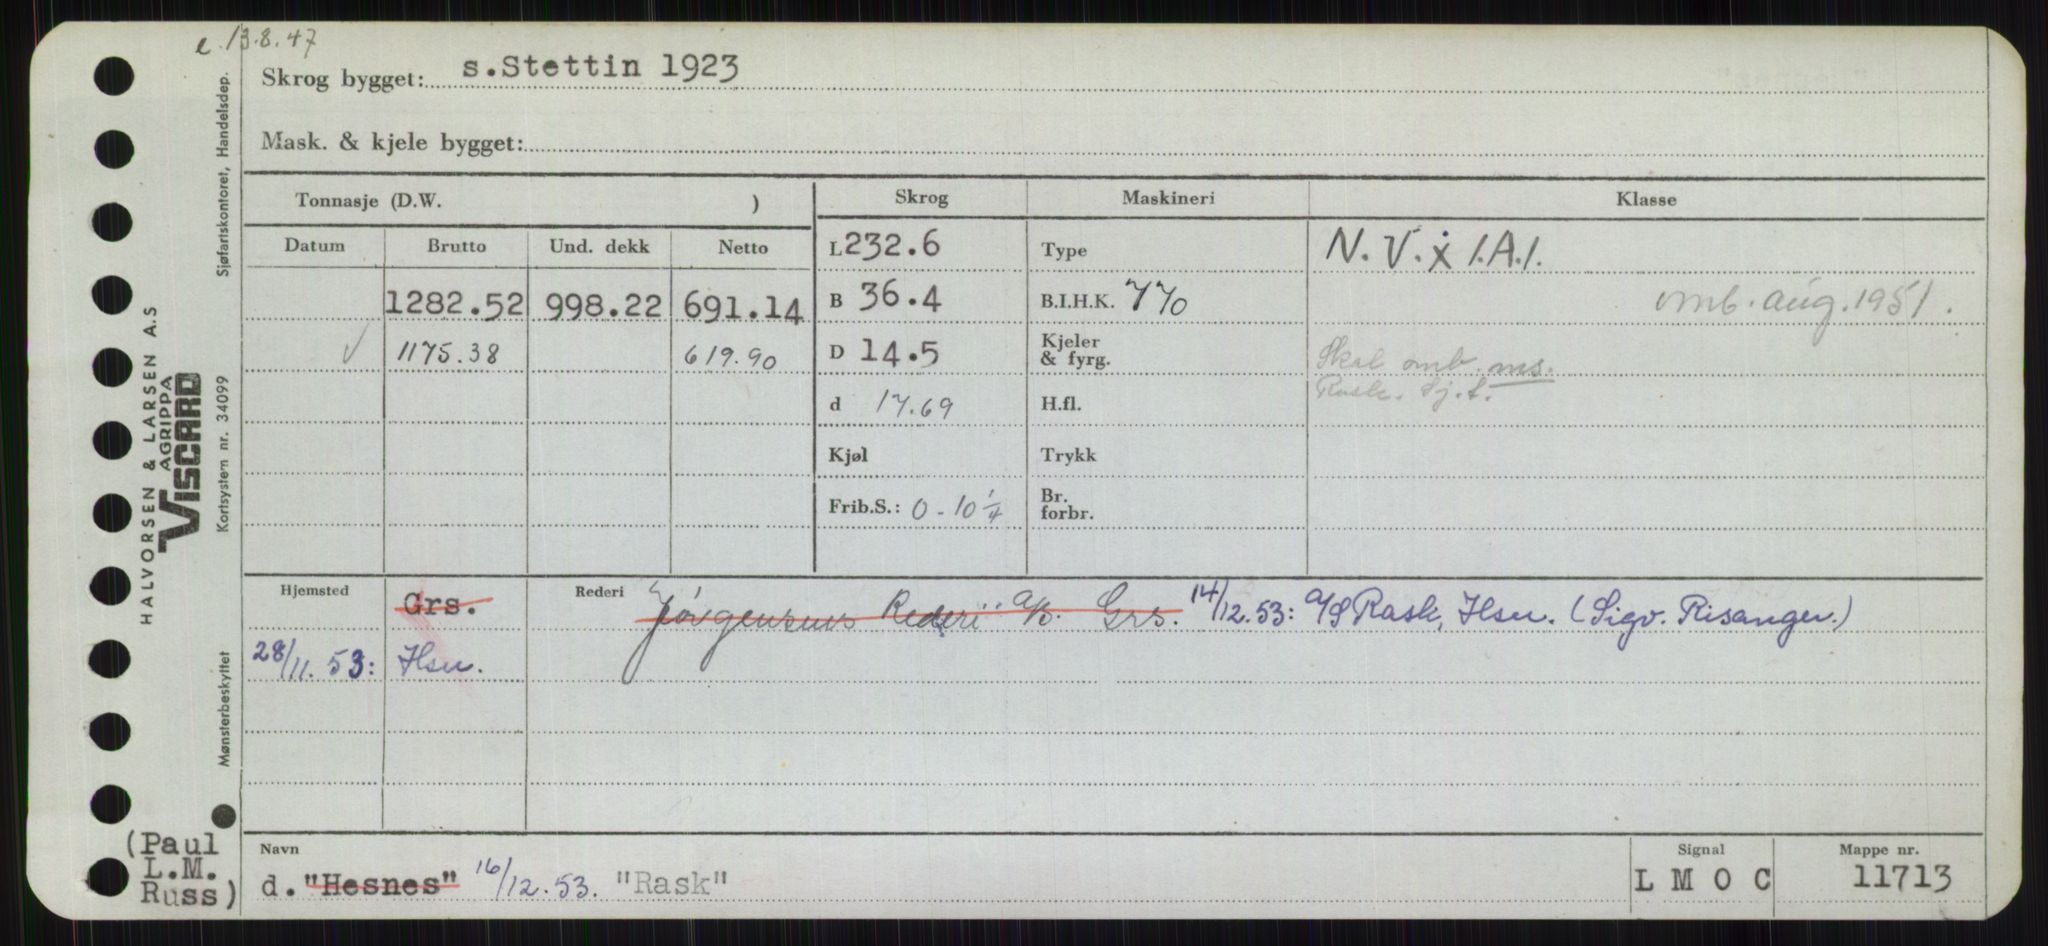 e. 13.8.47
Skrog bygget: s.Stettin 1923
Mask. & kjele bygget:
Tonnasje (D.W. )
Skrog
Maskineri
Klasse
Datum Brutto Und. dekk Netto
1282.52 998.22 691.14
✓ 1175.38 619.90
L 232.6
B 36.4
D 14.5
d 17.69
Kjøl
Frib.S.: 0-10 1/4
Type
B.I.H.K. 770
Kjeler
& fyrg.
H.fl.
Trykk
Br.
forbr.
N.V. ẋ 1.A.1.
omb. aug. 1951.
Skal omb. ms.
Rask. Sj.f.
Hjemsted Grs.
28/11.53: Hsn.
Rederi Jörgensens Rederi A/S. Grs. 14/12.53: A/S Rask, Hsn. (Sigv. Risanger.)
Navn
d. "Hesnes" 16/12.53. "Rask"
Signal
L M O C
Mappe nr.
11713
(Paul
L.M.
Russ)
HALVORSEN & LARSEN A.S
AGRIPPA
VISCARD
Sjøfartskontoret, Handelsdep.
Kortsystem nr. 34099
Mønsterbeskyttet